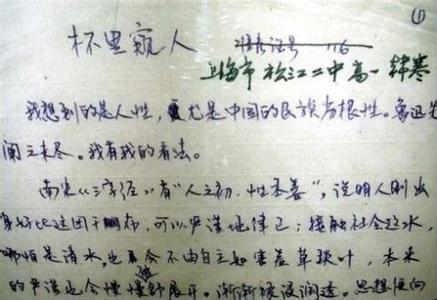 ①
杯里窥人
准考证号 116
上海市松江二中高一 韩寒
我想到的是人性，尤是中国的民族劣根性。鲁迅先
阐之未尽。我有我的看法。
南宋《三字经》有“人之初，性本善”，说明人刚出
好比这团干布，可以严谨地律己；接触社会这水，
哪怕是清水，也会不由自主如害羞草拔叶，本来
的严谨也会慢慢地舒展开，渐渐被浸润透。思想便向